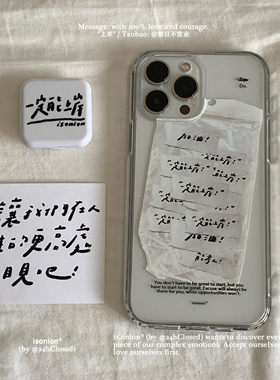 Message: with 100% love and courage.
"上岸" / Taobao: @整日不营业
Do.
一定能上岸
isonion
加油！
"一定能上岸！"
"一定能上岸！"
"一定能上岸！"
"一定能上岸！"
加油！
"一定能上岸！"
讓我们在人
生的更高處
眼见！
You don't have to be great to start, but you
have to start to be great. Excuse will always be
there for you, while opportunities won't.
isonion®
isonion®
(by @24hClosed)
isonion® (by @24hClosed) wants to discover every
piece of our complex emotions. Accept ourselves,
love ourselves first.